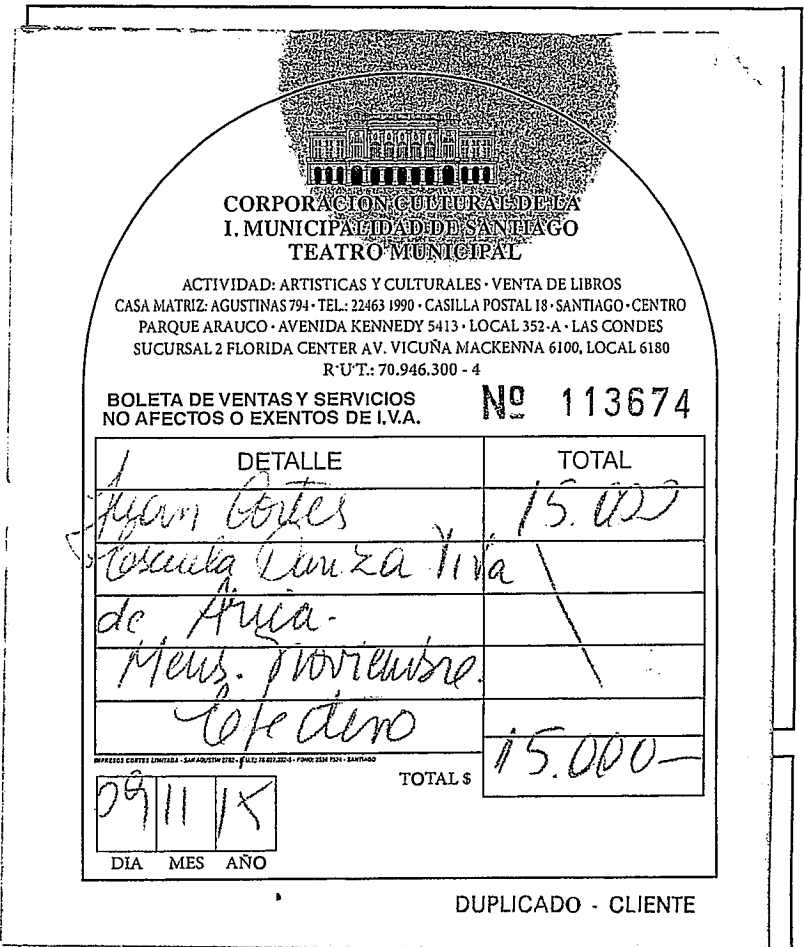 CORPORACION CULTURAL DE LA
I. MUNICIPALIDAD DE SANTIAGO
TEATRO MUNICIPAL
ACTIVIDAD: ARTISTICAS Y CULTURALES · VENTA DE LIBROS
CASA MATRIZ: AGUSTINAS 794 · TEL.: 22463 1990 · CASILLA POSTAL 18 · SANTIAGO · CENTRO
PARQUE ARAUCO · AVENIDA KENNEDY 5413 · LOCAL 352-A · LAS CONDES
SUCURSAL 2 FLORIDA CENTER AV. VICUÑA MACKENNA 6100, LOCAL 6180
R·U·T.: 70.946.300 - 4
BOLETA DE VENTAS Y SERVICIOS
NO AFECTOS O EXENTOS DE I.V.A.
Nº 113674
DETALLE TOTAL
Juan Cortes 15.000
Escuela Danza Viva
de
Mens. Noviembre.
15.000-
IMPRESOS CORTES LIMITADA - SAN AGUSTIN
TOTAL $
09 11 15
DIA MES AÑO
DUPLICADO - CLIENTE